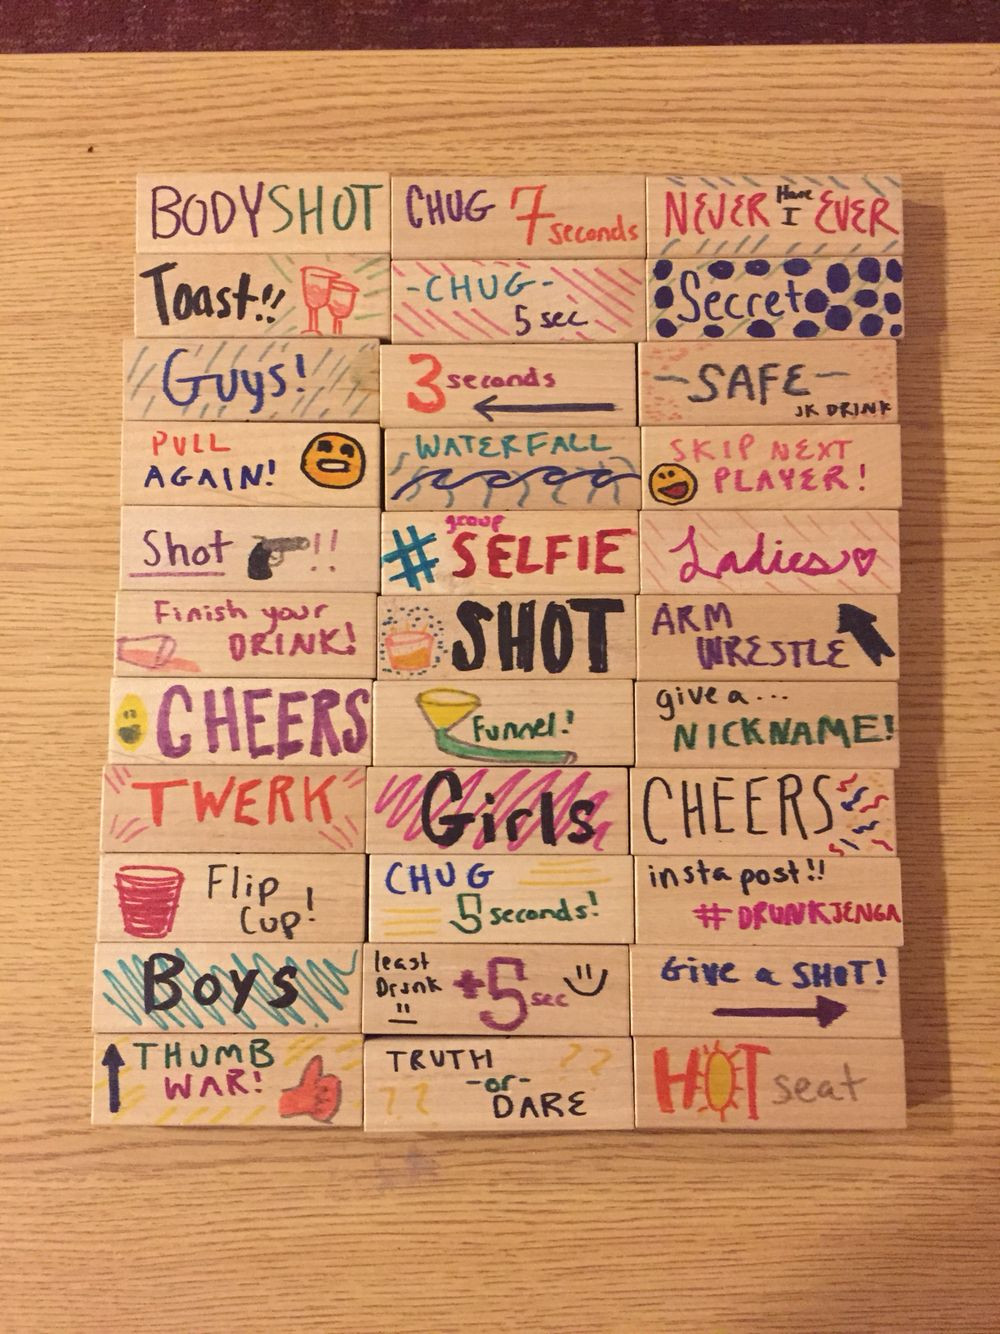 BODYSHOT
CHUG 7
seconds
NEVER Have I EVER
Toast!!
-CHUG-
5 sec
Secret
Guys!
3 seconds
-SAFE-
JK DRINK
PULL
AGAIN!
WATERFALL
SKIP NEXT
PLAYER!
Shot !!
# group
SELFIE
Ladies
Finish your
DRINK!
SHOT
ARM
WRESTLE
CHEERS
Funnel!
give a...
NICKNAME!
TWERK
Girls
CHEERS
Flip
Cup!
CHUG
5 seconds!
insta post!!
#DRUNKJENGA
Boys
least
Drunk
+5 sec
Give a SHOT!
THUMB
WAR!
TRUTH ??
-or-
?? DARE
HOT seat